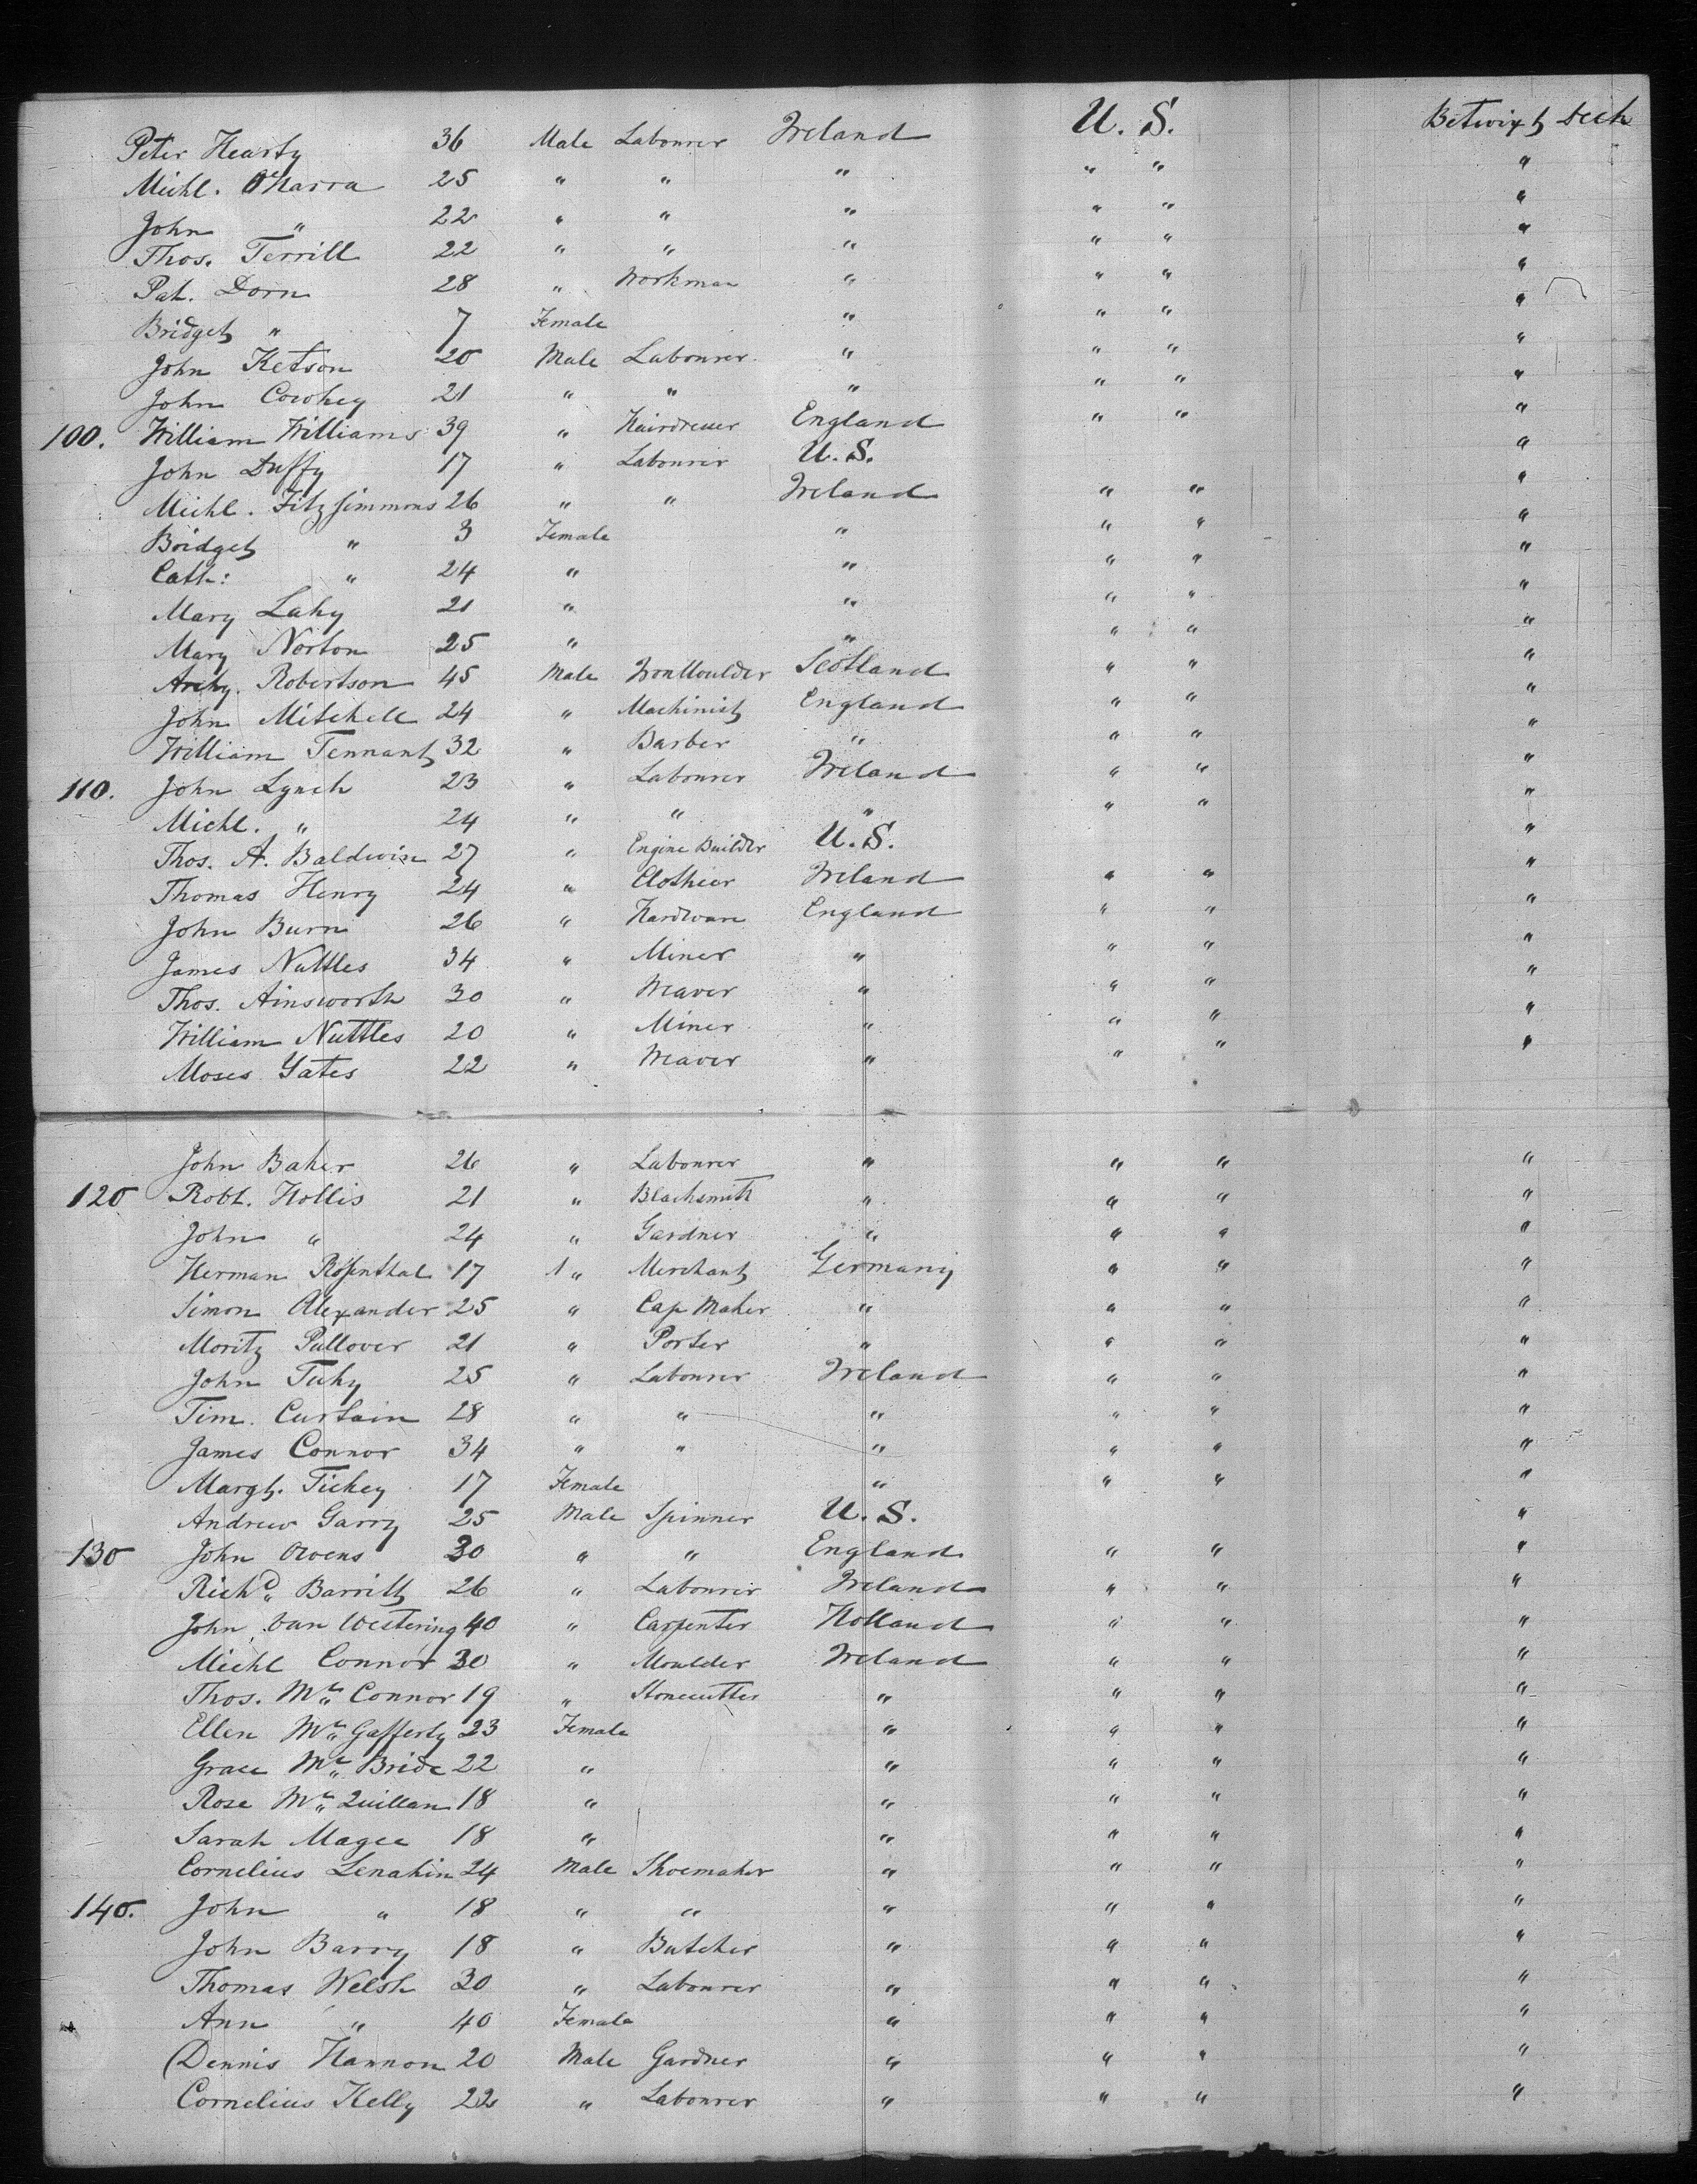 Peter Hearty 36 Male Labourer Ireland U. S. Betwixt Deck
Michl. O'Harra 25 " " " " " "
John " 22 " " " " " "
Thos. Terrill 22 " " " " " "
Pat. Dorn 28 " Workman " " " "
Bridget " 7 Female " " " "
John Ketson 20 Male Labourer " " " "
John Cowhey 21 " " " " " "
100. William Williams 39 " Hairdresser England " " "
John Duffy 17 " Labourer U. S. "
Michl. Fitzsimmons 26 " " Ireland " " "
Bridget " 3 Female " " " "
Cath: " 24 " " " " "
Mary Lahy 21 " " " " "
Mary Norton 25 " " " " "
Archy. Robertson 45 Male Iron Moulder Scotland " " "
John Mitchell 24 " Machinist England " " "
William Tennant 32 " Barber " " " "
110. John Lynch 23 " Labourer Ireland " " "
Michl. " 24 " " " " " "
Thos. A. Baldwin 27 " Engine Builder U. S. "
Thomas Henry 24 " Clotheer Ireland " " "
John Burn 26 " Hardware England " " "
James Nuttles 34 " Miner " " " "
Thos. Ainsworth 30 " Weaver " " " "
William Nuttles 20 " Miner " " " "
Moses Yates 22 " Weaver " " " "
John Baker 26 " Labourer " " " "
120 Robt. Hollis 21 " Blacksmith " " " "
John " 24 " Gardner " " " "
Herman Rosenthal 17 " Merchant Germany " " "
Simon Alexander 25 " Cap Maker " " " "
Moritz Pullover 21 " Porter " " " "
John Tuhy 25 " Labourer Ireland " " "
Tim. Curtain 28 " " " " " "
James Connor 34 " " " " " "
Margt. Tickey 17 Female " " " "
Andrew Garry 25 Male Spinner U. S. "
130 John Owens 30 " " England " " "
Richd. Barritt 26 " Labourer Ireland " " "
John van Westering 40 " Carpenter Holland " " "
Michl Connor 30 " Moulder Ireland " " "
Thos. Mc Connor 19 " Stonecutter " " " "
Ellen Mc Gafferty 23 Female " " " "
Grace Mc Bride 22 " " " " "
Rose Mc Quillan 18 " " " " "
Sarah Magee 18 " " " " "
Cornelius Lenahin 24 Male Shoemaker " " " "
140. John " 18 " " " " " "
John Barry 18 " Butcher " " " "
Thomas Welsh 30 " Labourer " " " "
Ann " 40 Female " " " "
Dennis Hannon 20 Male Gardner " " " "
Cornelius Kelly 22 " Labourer " " " "